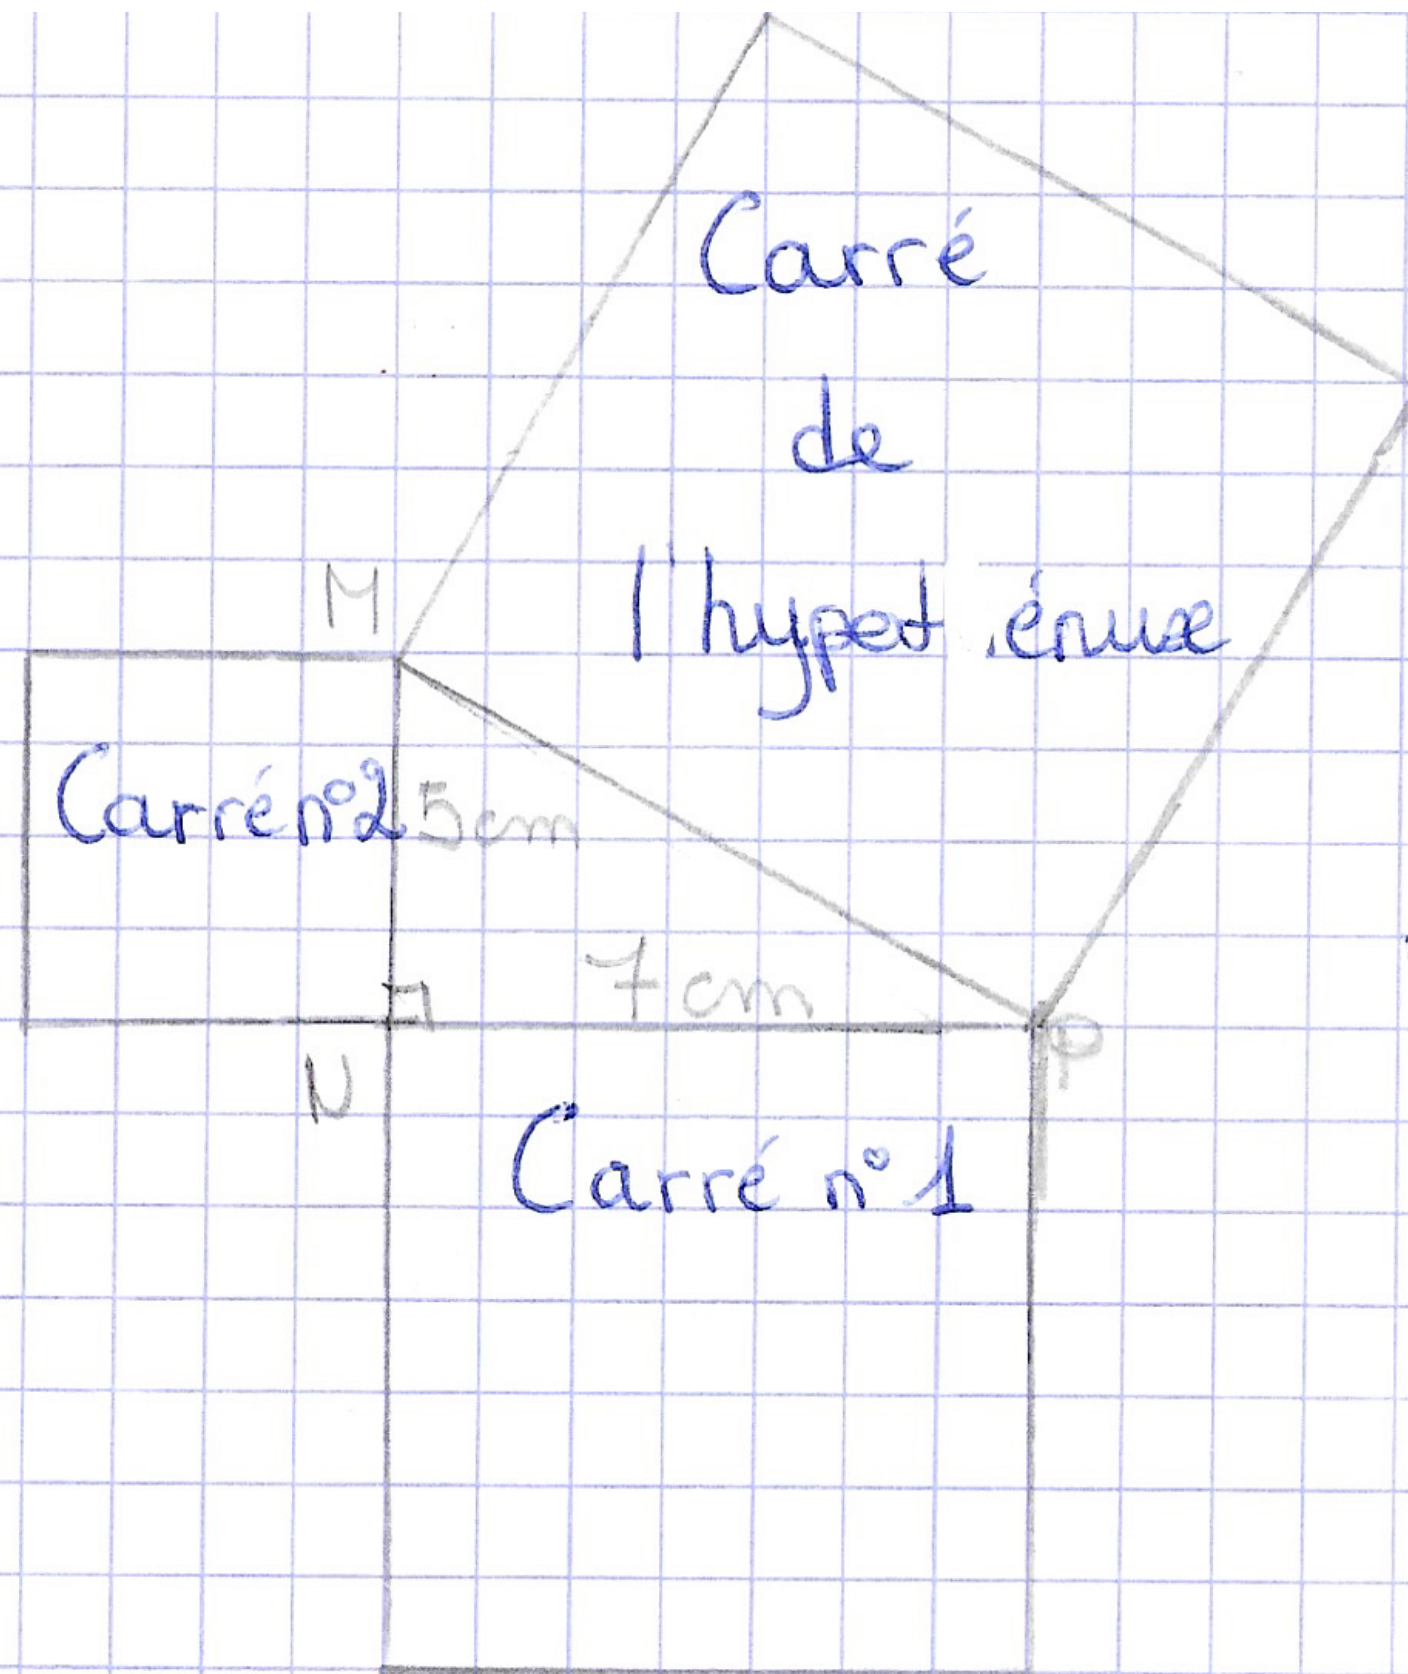 Carré
de
l'hypot énuse
M
Carré n°2
5cm
7 cm
P
N
Carré n°1